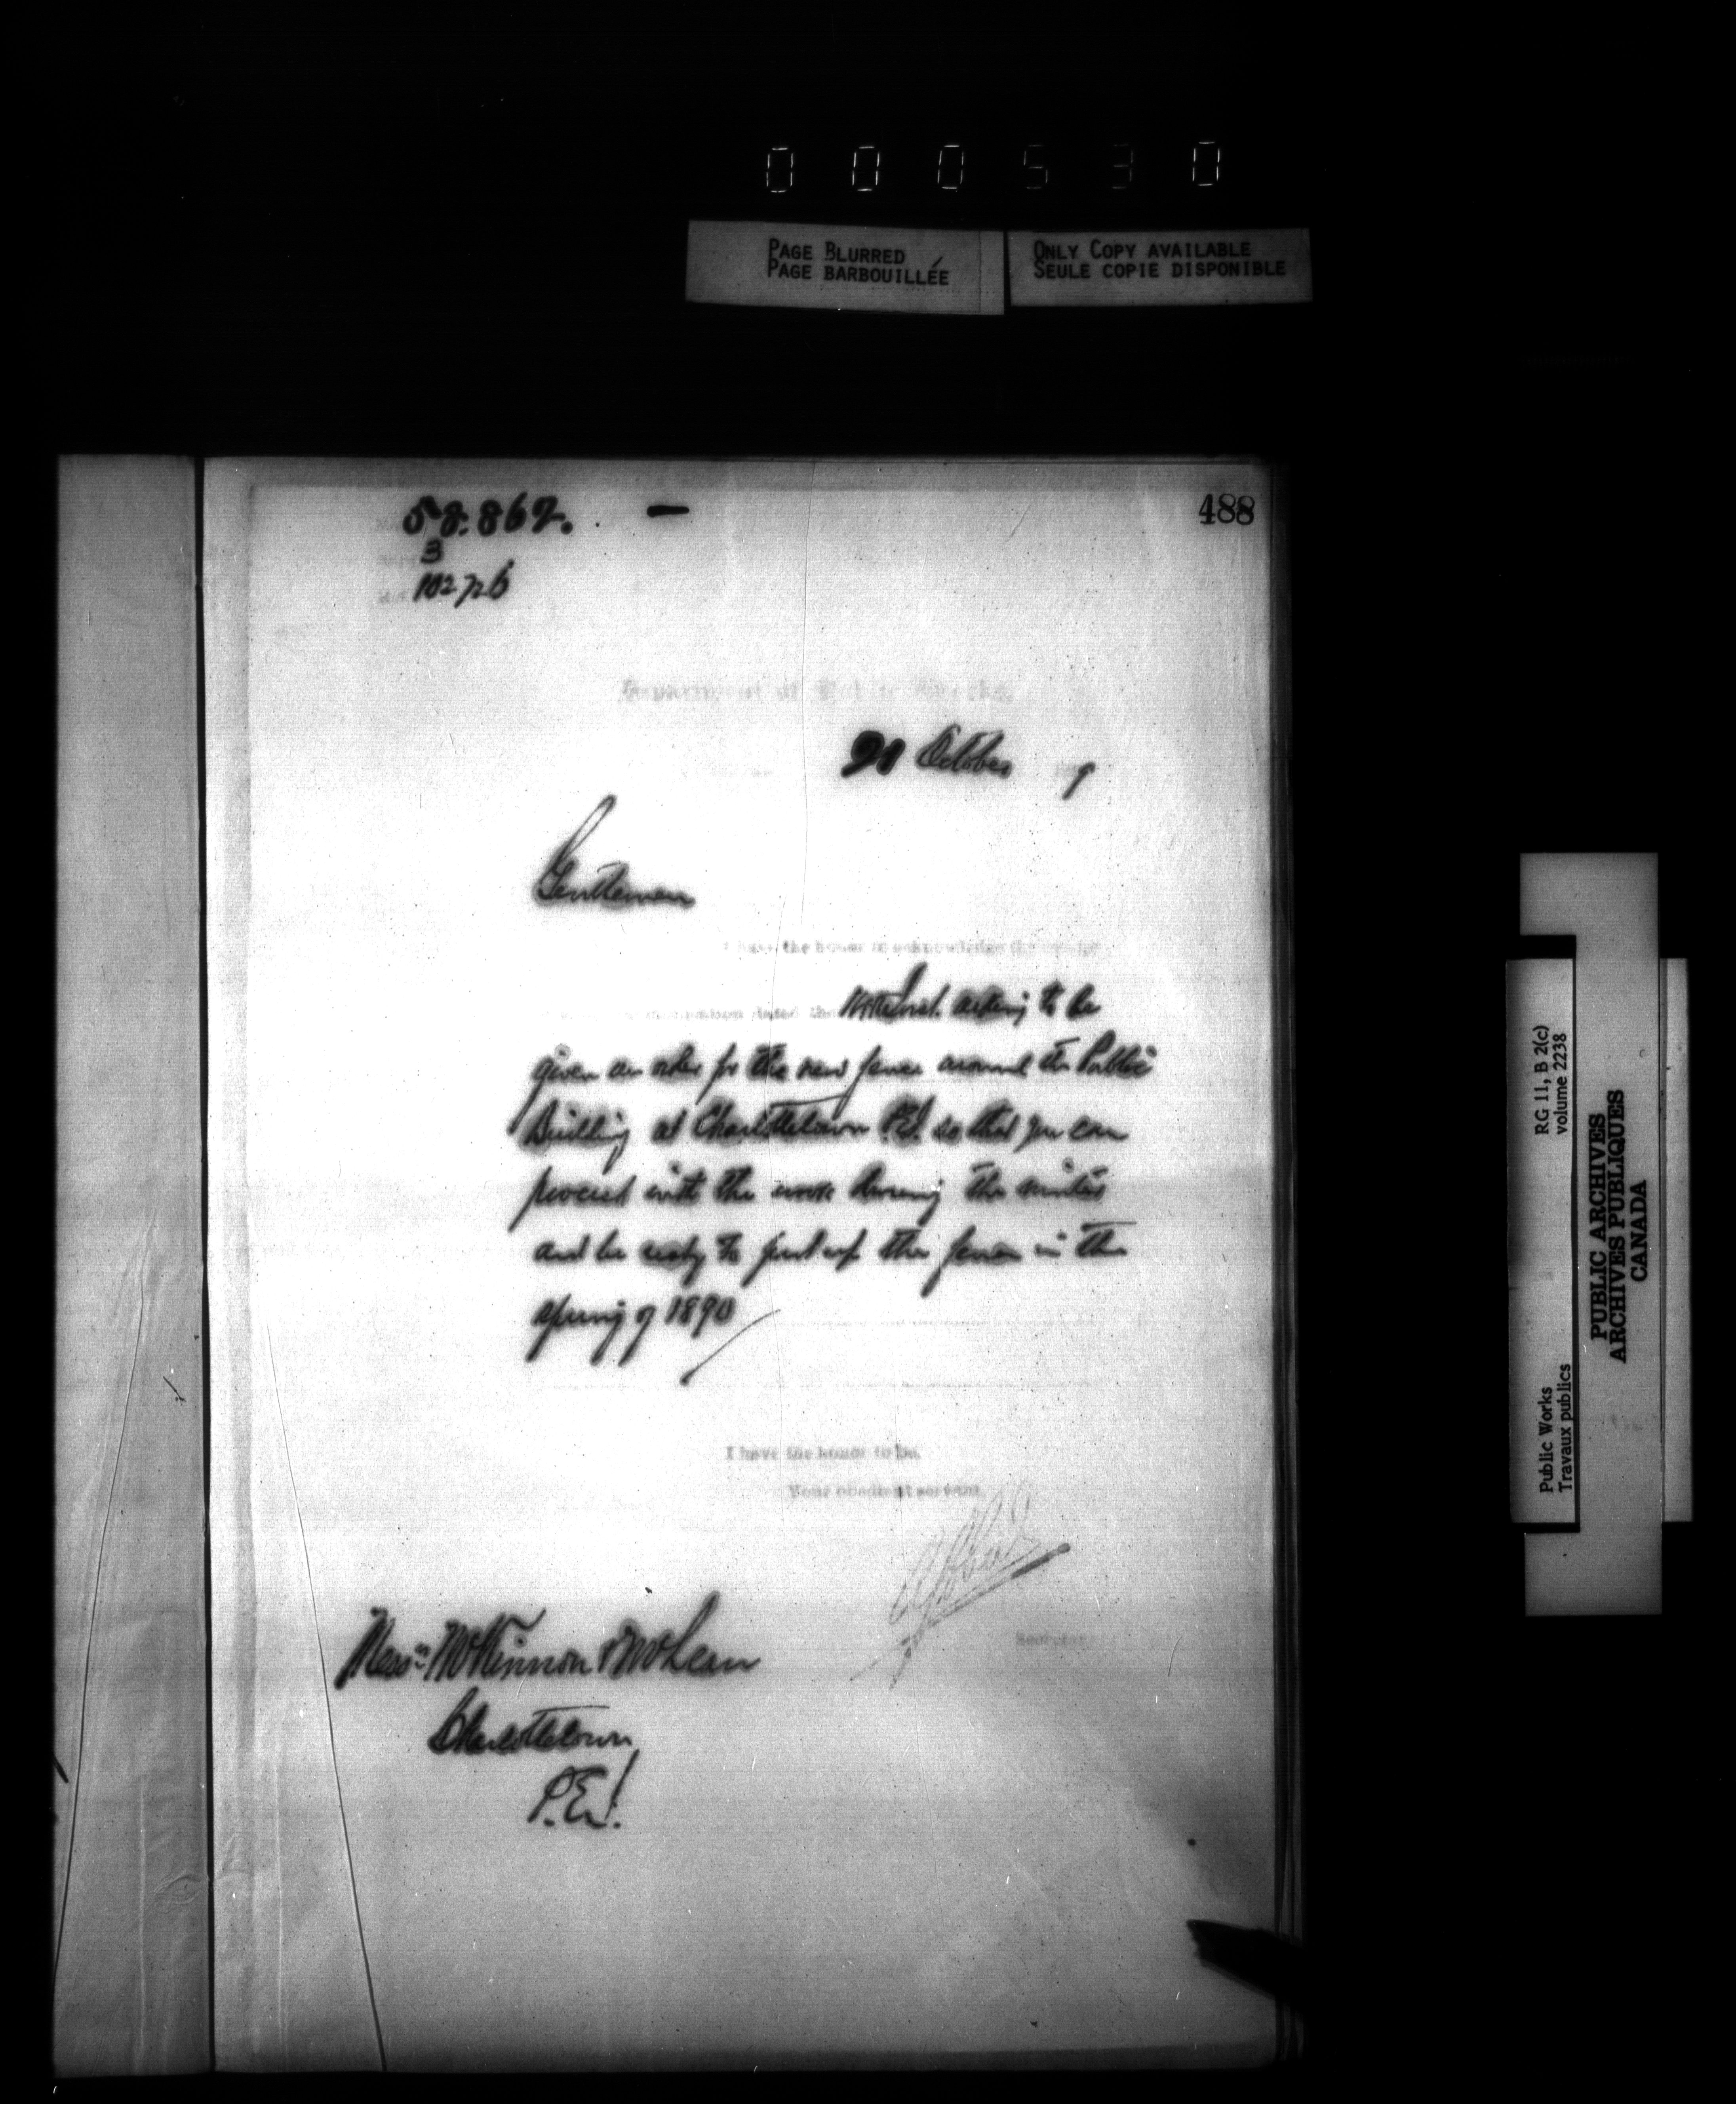 0 0 0 5 3 0
PAGE BLURRED
PAGE BARBOUILLÉE
ONLY COPY AVAILABLE
SEULE COPIE DISPONIBLE
488
58.867.
3
10272
Department of Public Works,
21 October 9
Gentlemen
I have the honor to acknowledge the receipt
dated the inst. asking to be
given an order for the new fence around the Public
Building at Charlottetown P.E.I. so that you can
proceed with the work during the winter
and be ready to put up the fence in the
spring of 1890
I have the honor to be,
Your obedient servant,
Secretary
Messrs McKinnon & McLean
Charlottetown
P.E.I.
Public Works
Travaux publics
RG 11, B 2(c)
volume 2238
PUBLIC ARCHIVES
ARCHIVES PUBLIQUES
CANADA